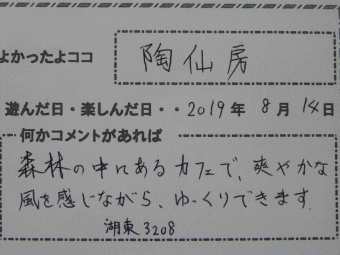 よかったよココ
陶仙房
遊んだ日・楽しんだ日・・2019年8月14日
何かコメントがあれば
森林の中にあるカフェで、爽やかな
風を感じながら、ゆっくりできます。
湖東3208